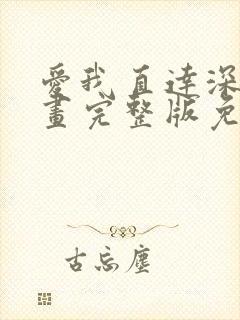 愛我直達深
畫完整版免
古忘塵